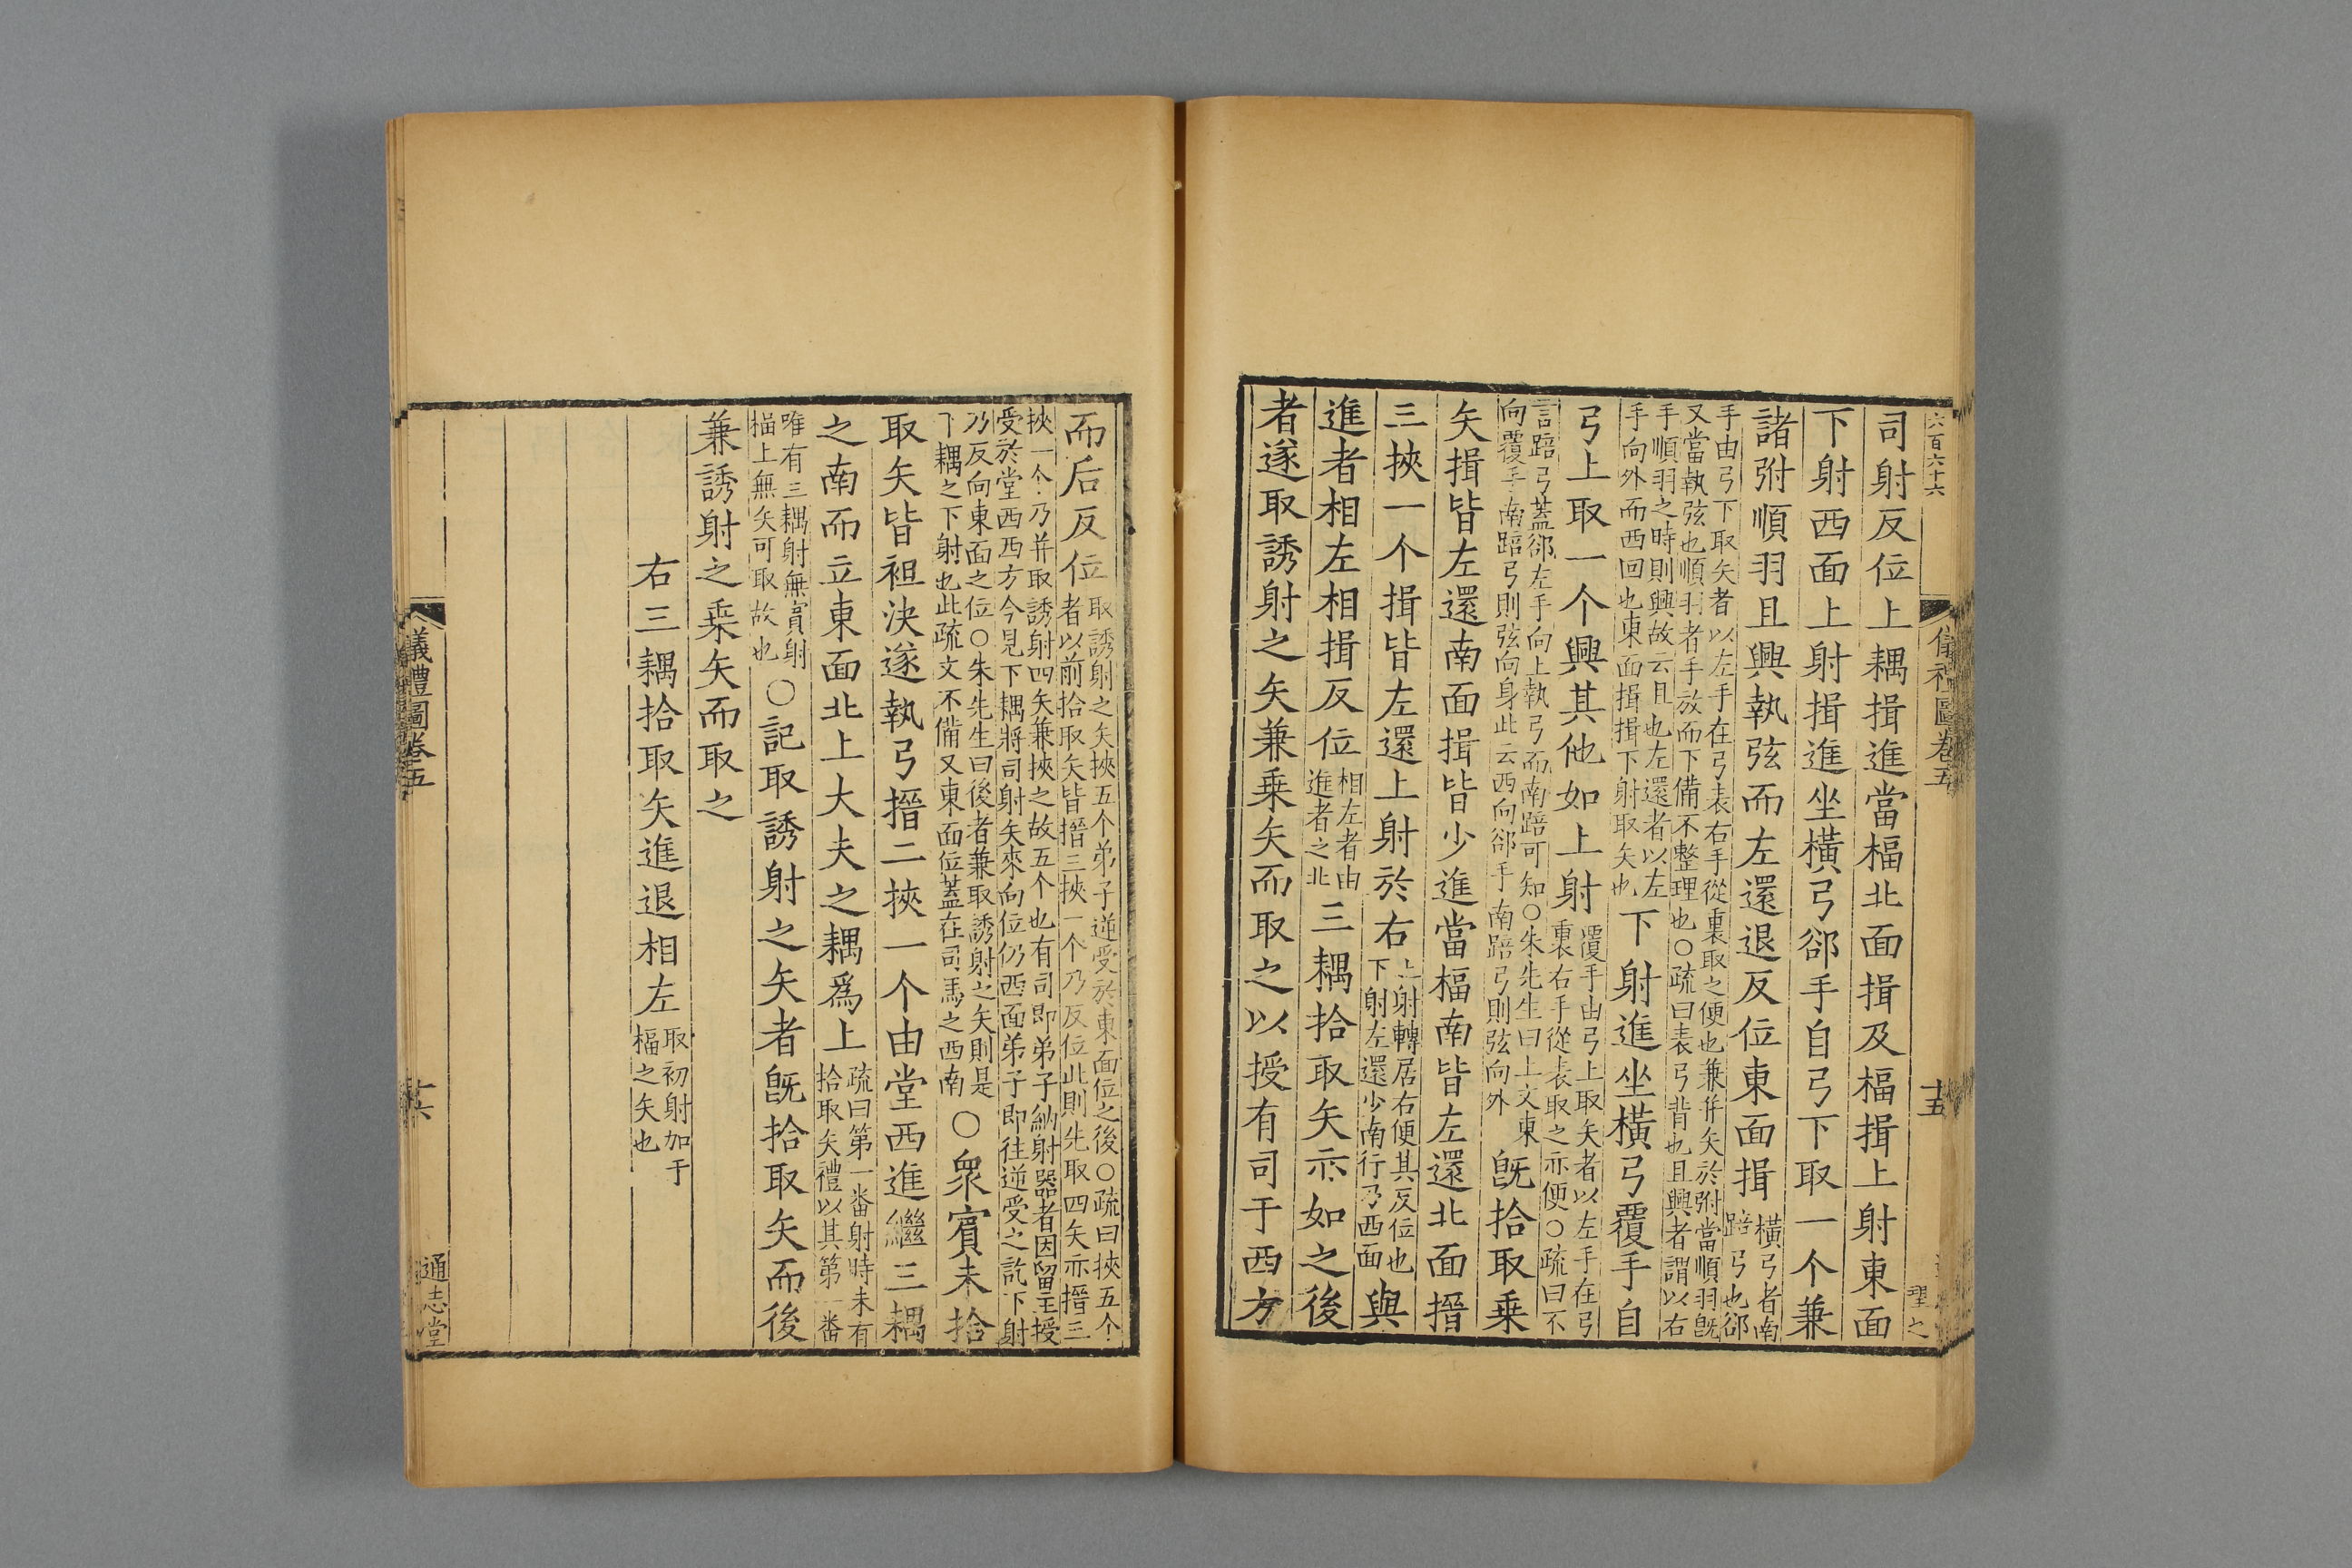 六百六十六
儀禮圖卷五
十五
司射反位上耦揖進當楅北面揖及楅揖上射東面
下射西面上射揖進坐橫弓郤手自弓下取一个兼
諸弣順羽且興執弦而左還退反位東面揖橫弓者南踣弓也郤
手由弓下取矢者以左手在弓表右手從裏取之便也兼幷矢於弣當順羽旣
又當執弦也順羽者手放而下備不整理也○疏曰表弓背也且興者謂以右
手順羽之時則興故云且也左還者以左
手向外而西回也東面揖揖下射取矢也下射進坐橫弓覆手自
弓上取一个興其他如上射覆手由弓上取矢者以左手在弓
裏右手從表取之亦便○疏曰不
言踣弓蓋郤左手向上執弓而南踣可知○朱先生曰上文東
向覆手南踣弓則弦向身此云西向郤手南踣弓則弦向外旣拾取乘
矢揖皆左還南面揖皆少進當楅南皆左還北面搢
三挾一个揖皆左還上射於右上射轉居右便其反位也
下射左還少南行乃西面與
進者相左相揖反位相左者由
進者之北三耦拾取矢亦如之後
者遂取誘射之矢兼乗矢而取之以授有司于西方
而后反位取誘射之矢挾五个弟子逆受於東面位之後○疏曰挾五个
者以前拾取矢皆搢三挾一个乃反位此則先取四矢亦搢三
挾一个乃幷取誘射四矢兼挾之故五个也有司即弟子納射器者因留主授
受於堂西西方今見下耦將司射矢來向位仍西面弟子即往逆受之訖下射
乃反向東面之位○朱先生曰後者兼取誘射之矢則是
下耦之下射也此疏文不備又東面位蓋在司馬之西南○衆賓未拾
取矢皆袒決遂執弓搢三挾一个由堂西進繼三耦
之南而立東面北上大夫之耦爲上疏曰第一番射時未有
拾取矢禮以其第一番
唯有三耦射無賓射
楅上無矢可取故也○記取誘射之矢者旣拾取矢而後
兼誘射之乗矢而取之
右三耦拾取矢進退相左取初射加于
楅之矢也
儀禮圖卷五
十六
通志堂